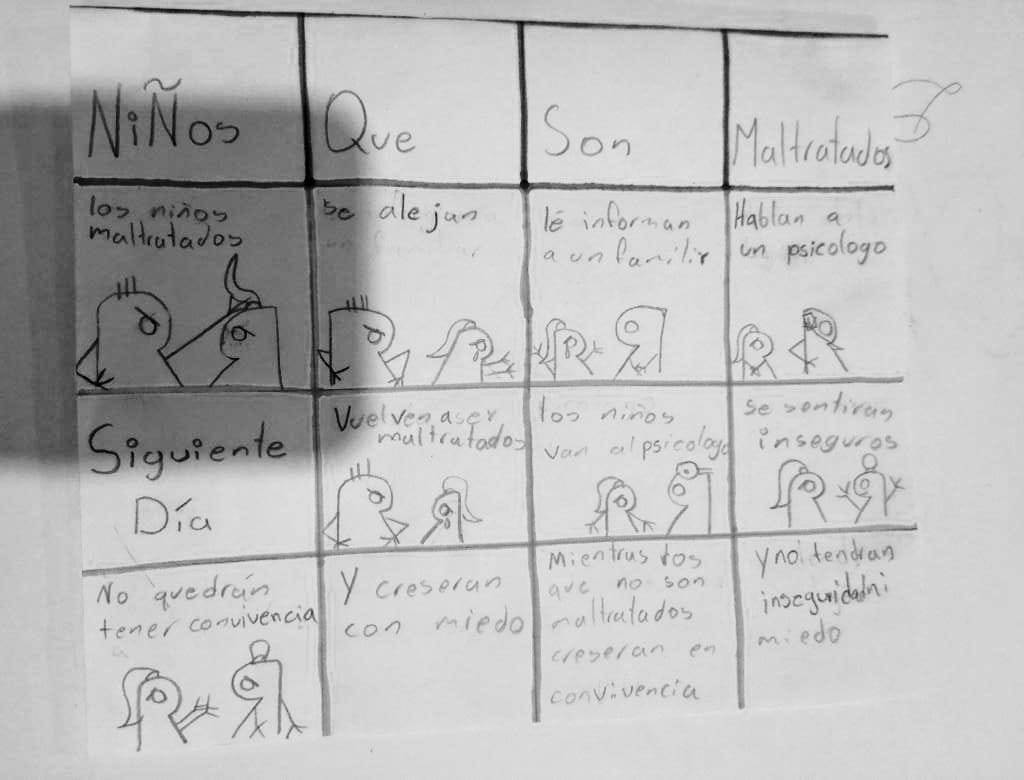 NiÑos
Que
Son
Maltratados
los niños
maltratados
se alejan
lé informan
a un familir
Hablan a
un psicologo
Siguiente
Día
Vuelven aser
maltratados
los niños
van al psicologo
se sentiran
inseguros
No quedrán
tener convivencia
Y creseran
con miedo
Mientras los
que no son
maltratados
creseran en
convivencia
y noi tendran
inseguridadni
miedo